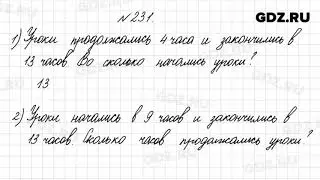 GDZ.RU
№231.
1) Уроки продолжались 4 часа и закончились в
13 часов Во сколько начались уроки?
13
2) Уроки начались в 9 часов и закончились в
13 часов. Сколько часов продолжались уроки?